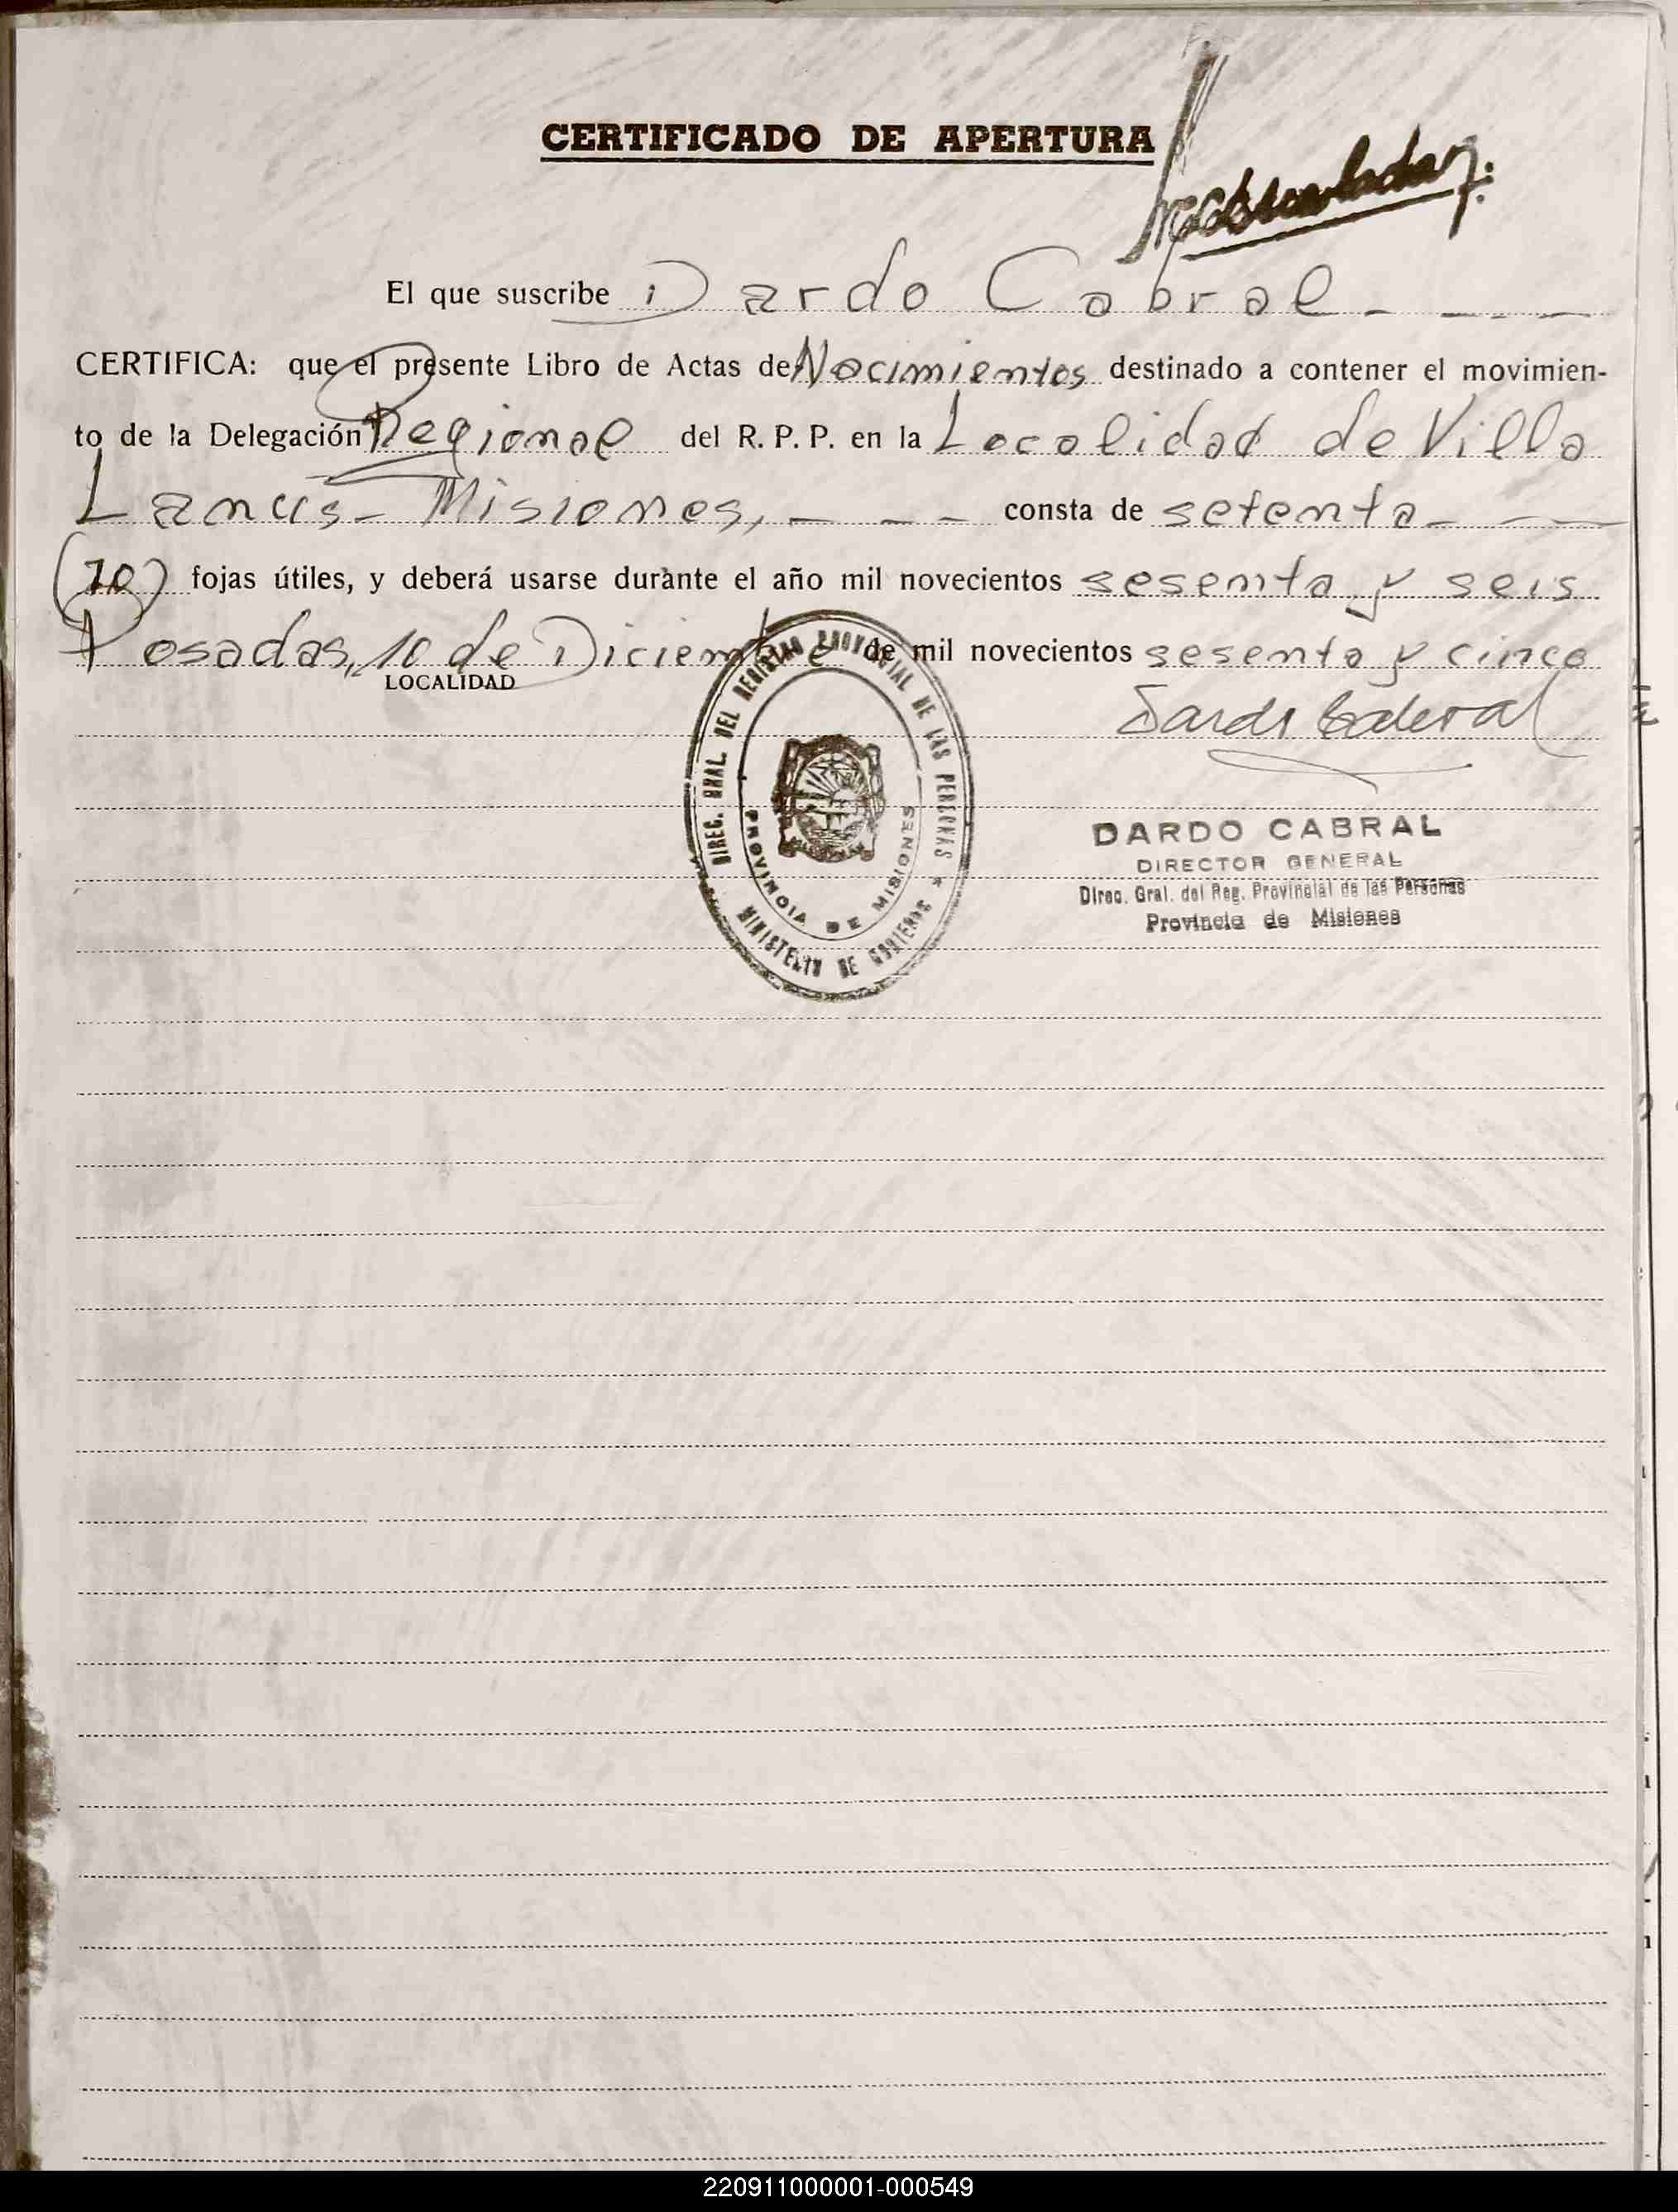 CERTIFICADO DE APERTURA
El que suscribe Dardo Cabral
CERTIFICA: que el presente Libro de Actas de Nacimientos destinado a contener el movimien-
to de la Delegación Regional del R. P. P. en la Localidad de Villa
Lanus - Misiones, - - - consta de setenta
(70) fojas útiles, y deberá usarse durante el año mil novecientos sesenta y seis
Posadas, 10 de Diciembre de mil novecientos sesenta y cinco
LOCALIDAD
Dardo Cabral
DIREC. GRAL. DEL REGISTRO PROVINCIAL DE LAS PERSONAS *
MINISTERIO DE GOBIERNO
PROVINCIA DE MISIONES
DARDO CABRAL
DIRECTOR GENERAL
Direc. Gral. del Reg. Provincial de las Personas
Provincia de Misiones
220911000001-000549